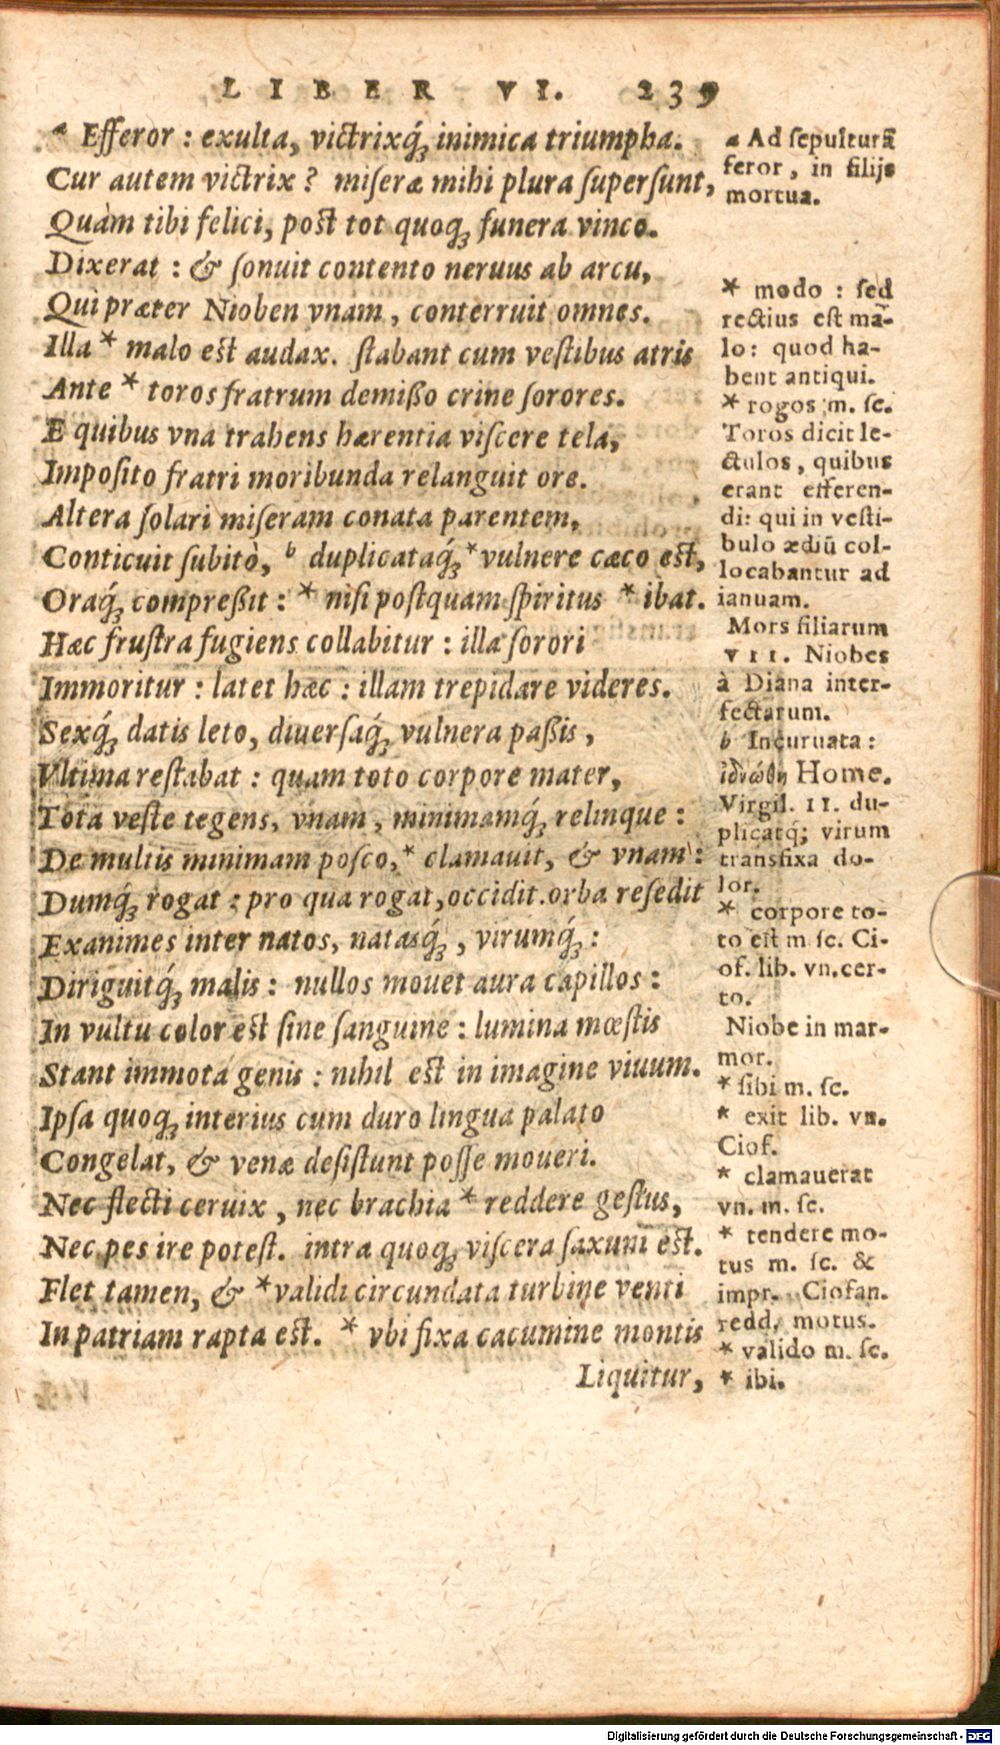 LIBER VI. 239
a Efferor : exulta, victrixq́; inimica triumpha.
Cur autem victrix? miseræ mihi plura supersunt,
Quàm tibi felici, post tot quoq; funera vinco.
Dixerat : & sonuit contento neruus ab arcu,
Qui præter Nioben vnam, conterruit omnes.
Illa * malo est audax. stabant cum vestibus atris
Ante * toros fratrum demißo crine sorores.
E quibus vna trahens hærentia viscere tela,
Imposito fratri moribunda relanguit ore.
Altera solari miseram conata parentem,
Conticuit subitò, b duplicataq́; * vulnere cæco est,
Oraq́; compreßit : * nisi postquam spiritus * ibat.
Hæc frustra fugiens collabitur : illa sorori
Immoritur : latet hæc : illam trepidare videres.
Sexq́; datis leto, diuersaq́; vulnera paßis,
Vltima restabat : quam toto corpore mater,
Tota veste tegens, vnam, minimamq́; relinque :
De multis minimam posco, * clamauit, & vnam :
Dumq́; rogat : pro qua rogat, occidit. orba resedit
Exanimes inter natos, natasq́;, virumq́; :
Diriguitq́; malis : nullos mouet aura capillos :
In vultu color est sine sanguine : lumina mœstis
Stant immota genis : nihil est in imagine viuum.
Ipsa quoq; interius cum duro lingua palato
Congelat, & venæ desistunt posse moueri.
Nec flecti ceruix, nec brachia * reddere gestus,
Nec pes ire potest. intra quoq; viscera saxum est.
Flet tamen, & * validi circundata turbine venti
In patriam rapta est. * vbi fixa cacumine montis
Liquitur,
a Ad sepulturā
feror, in filijs
mortua.
* modo : sed
rectius est ma-
lo: quod ha-
bent antiqui.
* rogos m. sc.
Toros dicit le-
ctulos, quibus
erant efferen-
di: qui in vesti-
bulo ædiū col-
locabantur ad
ianuam.
Mors filiarum
VII. Niobes
à Diana inter-
fectarum.
b Incuruata :
Home.
Virgil. 11. du-
plicatq́; virum
transfixa do-
lor.
* corpore to-
to est m sc. Ci-
of. lib. vn. cer-
to.
Niobe in mar-
mor.
* sibi m. sc.
* exit lib. vn.
Ciof.
* clamauerat
vn. m. sc.
* tendere mo-
tus m. sc. &
impr. Ciofan.
redd. motus.
* valido m. sc.
* ibi.
Digitalisierung gefördert durch die Deutsche Forschungsgemeinschaft - DFG